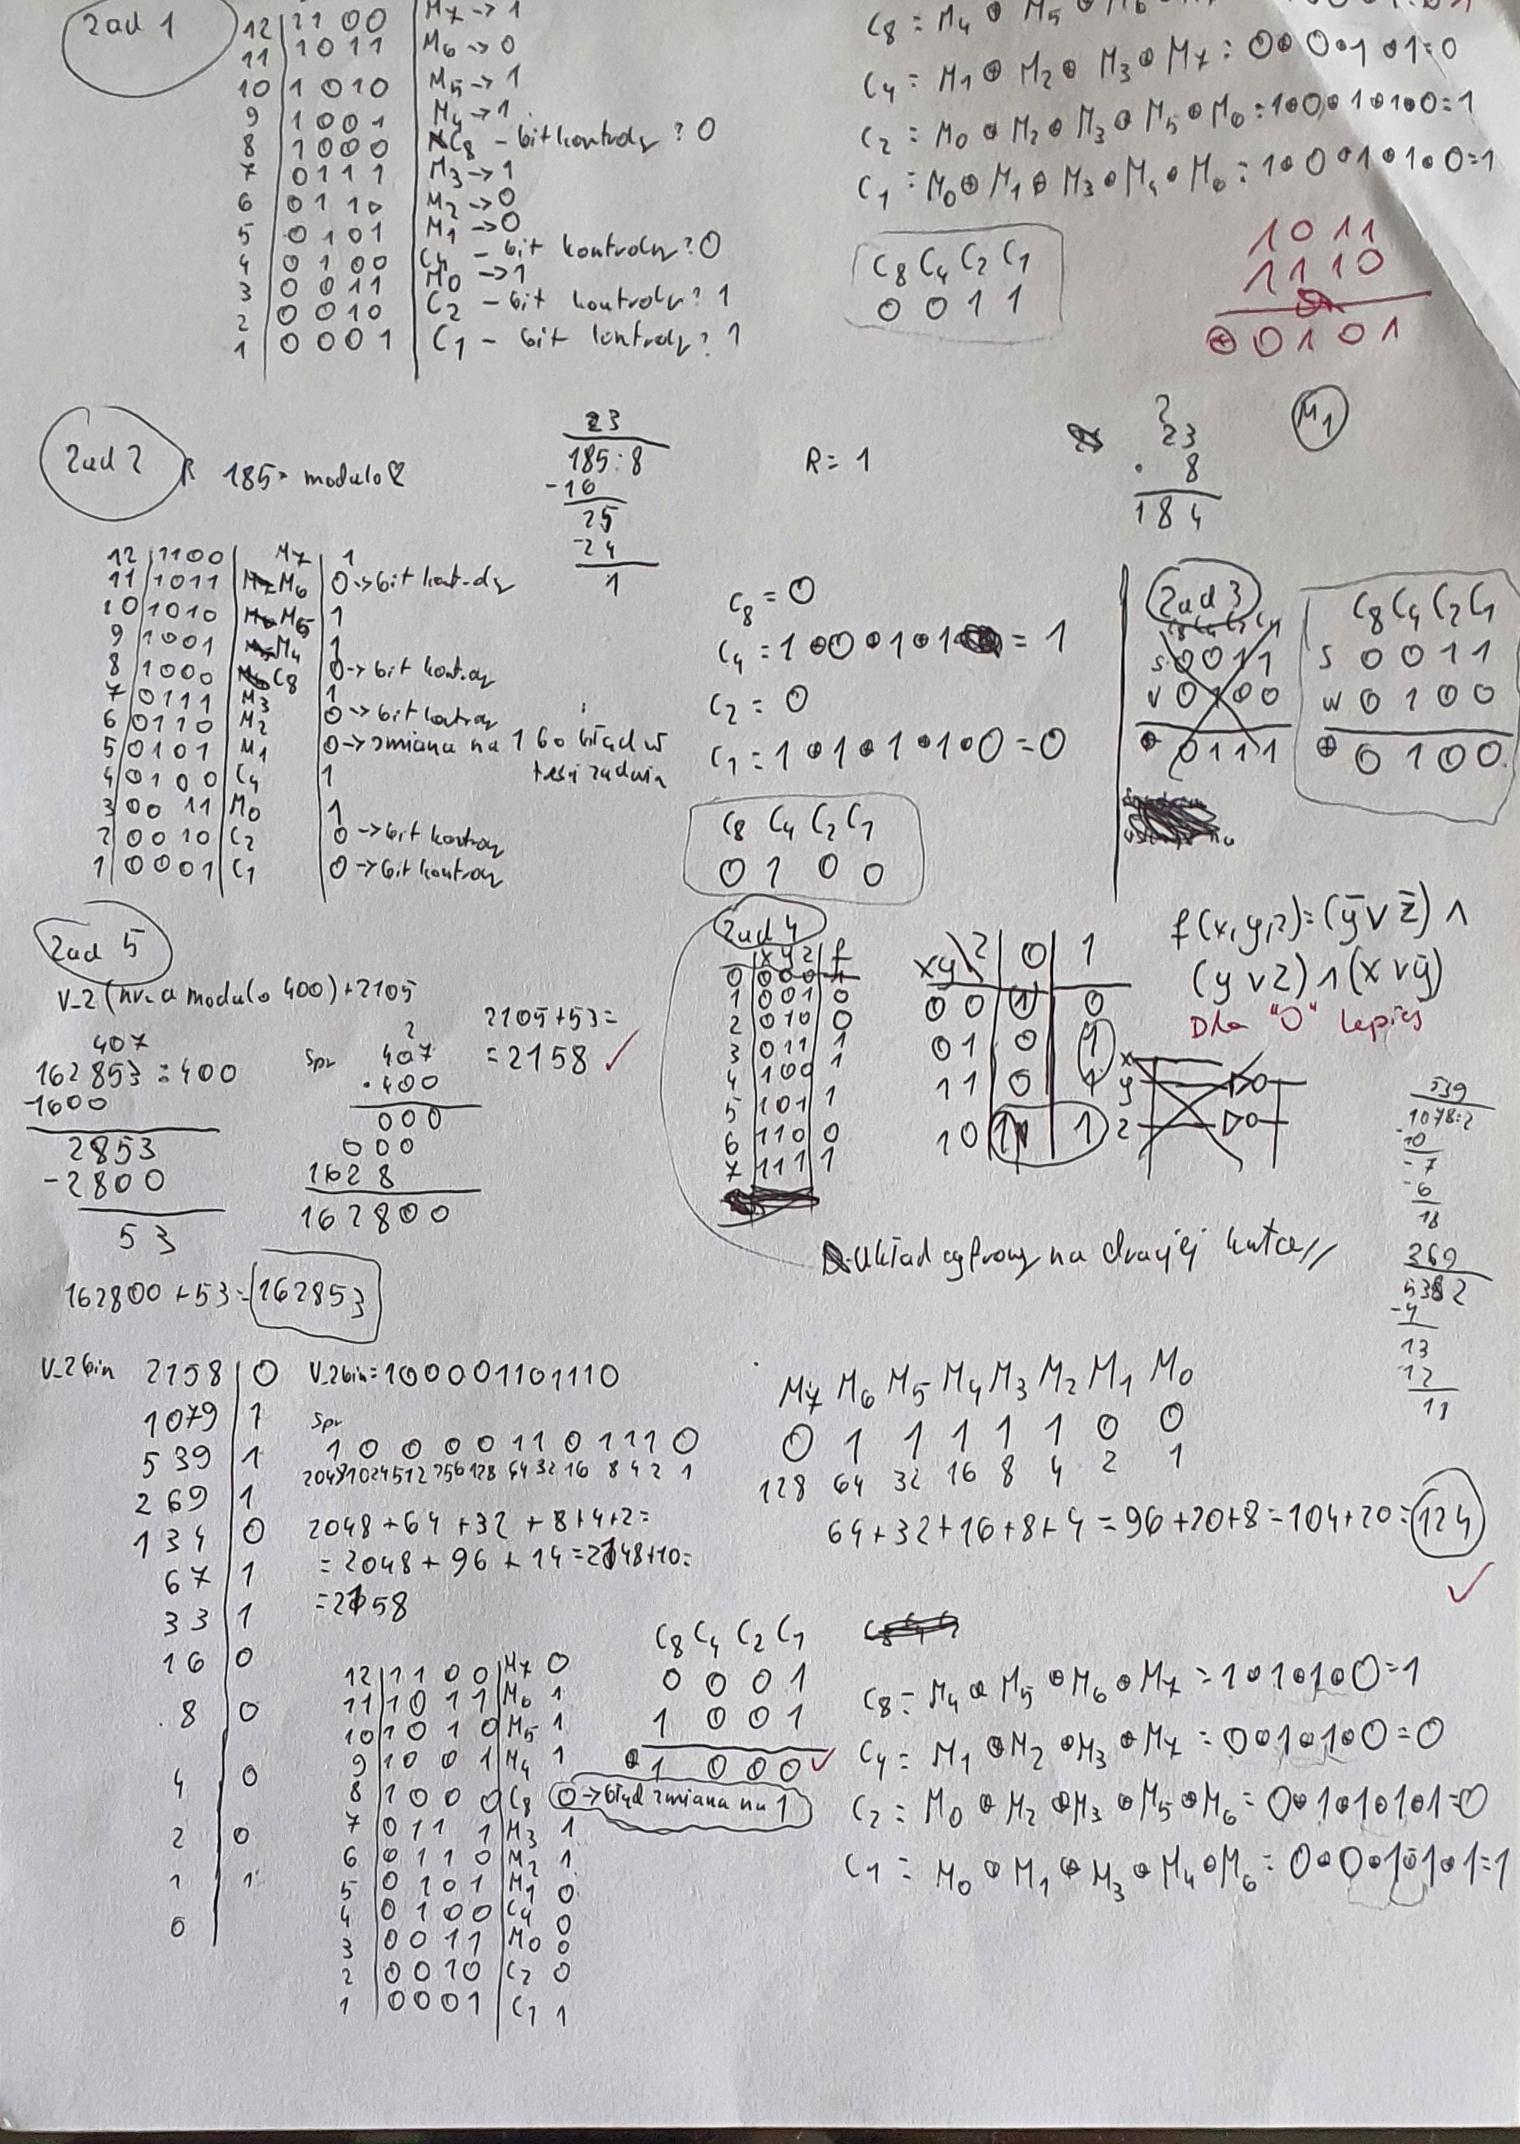 Zad 1
12 1100 M7 -> 1
11 1011 M6 -> 0
10 1010 M5 -> 1
9 1001 M4 -> 1
8 1000 C8 - bit kontrolny ? 0
7 0111 M3 -> 1
6 0110 M2 -> 0
5 0101 M1 -> 0
4 0100 C4 - bit kontrolny ? 0
3 0011 M0 -> 1
2 0010 C2 - bit kontrolny ? 1
1 0001 C1 - bit kontrolny ? 1
C8 = M4 ⊕ M5
C4 = M1 ⊕ M2 ⊕ M3 ⊕ M7 = 0⊕0⊕1⊕1=0
C2 = M0 ⊕ M2 ⊕ M3 ⊕ M5 ⊕ M6 = 1⊕0⊕1⊕1⊕0=1
C1 = M0 ⊕ M1 ⊕ M3 ⊕ M4 ⊕ M6 = 1⊕0⊕1⊕1⊕0=1
C8 C4 C2 C1
0 0 1 1
1011
1110
⊕ 0 1 0 1
Zad 2
R 185 modulo 8
23
185:8
-16
25
-24
1
R = 1
2
23
· 8
184
M1
12 1100 M7 1
11 1011 M6 0 -> bit kontrolny
10 1010 M5 1
9 1001 M4 1
8 1000 C8 0 -> bit kontrolny
7 0111 M3 1
6 0110 M2 0 -> bit kontrolny
5 0101 M1 0 -> zmiana na 1 bo błąd w
treści zadania
4 0100 C4 1
3 0011 M0 1
2 0010 C2 0 -> bit kontrolny
1 0001 C1 0 -> bit kontrolny
C8 = 0
C4 = 1⊕0⊕1⊕1 = 1
C2 = 0
C1 = 1⊕1⊕1⊕1⊕0 = 0
C8 C4 C2 C1
0 1 0 0
Zad 3
C8 C4 C2 C1
S 0011
V 0100
⊕ 0111
C8 C4 C2 C1
S 0 0 1 1
W 0 1 0 0
⊕ 0 1 0 0
Zad 4
x y z f
0 000 1
1 001 0
2 010 0
3 011 1
4 100 1
5 101 1
6 110 0
7 111 1
xy\z 0 1
00 1 0
01 0 1
11 0 1
10 1 1
f(x,y,z)=(ȳ∨z̄)∧
(y∨z)∧(x∨ȳ)
Dla "0" lepiej
x
y
z
Układ cyfrowy na drugiej kartce
539
1078:2
-10
-7
-6
18
269
538 2
-4
13
12
18
Zad 5
V_2 (nr_a modulo 400)+2105
407
162853 : 400
-1600
2853
-2800
53
Spr
2
407
·400
000
000
1628
162800
2105+53=
=2158 ✓
162800+53=162853
V_2bin 2158 0
1079 1
539 1
269 1
134 0
67 1
33 1
16 0
8 0
4 0
2 0
1 1
0
V_2bin=100001101110
Spr
1 0 0 0 0 1 1 0 1 1 1 0
2048 1024 512 256 128 64 32 16 8 4 2 1
2048+64+32+8+4+2=
=2048+96+14=2148+10=
=2158
M7 M6 M5 M4 M3 M2 M1 M0
0 1 1 1 1 1 0 0
128 64 32 16 8 4 2 1
64+32+16+8+4=96+20+8=104+20=124
✓
12 1100 M7 0
11 1011 M6 1
10 1010 M5 1
9 1001 M4 1
8 1000 C8 0 -> błąd zmiana na 1
7 0111 M3 1
6 0110 M2 1
5 0101 M1 0
4 0100 C4 0
3 0011 M0 0
2 0010 C2 0
1 0001 C1 1
C8 C4 C2 C1
0 0 0 1
1 0 0 1
⊕ 1 0 0 0 ✓
C8 = M4 ⊕ M5 ⊕ M6 ⊕ M7 = 1⊕1⊕1⊕0=1
C4 = M1 ⊕ M2 ⊕ M3 ⊕ M7 = 0⊕1⊕1⊕0=0
C2 = M0 ⊕ M2 ⊕ M3 ⊕ M5 ⊕ M6 = 0⊕1⊕1⊕1⊕1=0
C1 = M0 ⊕ M1 ⊕ M3 ⊕ M4 ⊕ M6 = 0⊕0⊕1⊕1⊕1=1